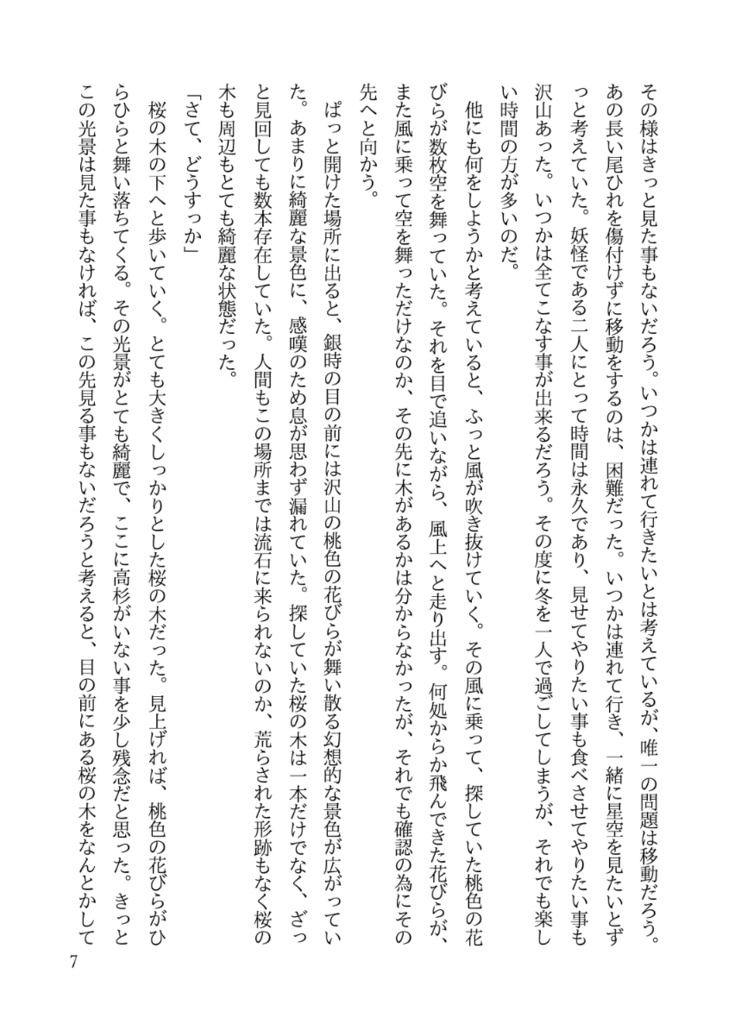 その様はきっと見た事もないだろう。いつかは連れて行きたいとは考えているが、唯一の問題は移動だろう。
あの長い尾ひれを傷付けずに移動をするのは、困難だった。いつかは連れて行き、一緒に星空を見たいとず
っと考えていた。妖怪である二人にとって時間は永久であり、見せてやりたい事も食べさせてやりたい事も
沢山あった。いつかは全てこなす事が出来るだろう。その度に冬を一人で過ごしてしまうが、それでも楽し
い時間の方が多いのだ。
他にも何をしようかと考えていると、ふっと風が吹き抜けていく。その風に乗って、探していた桃色の花
びらが数枚空を舞っていた。それを目で追いながら、風上へと走り出す。何処からか飛んできた花びらが、
また風に乗って空を舞っただけなのか、その先に木があるかは分からなかったが、それでも確認の為にその
先へと向かう。
ぱっと開けた場所に出ると、銀時の目の前には沢山の桃色の花びらが舞い散る幻想的な景色が広がってい
た。あまりに綺麗な景色に、感嘆のため息が思わず漏れていた。探していた桜の木は一本だけでなく、ざっ
と見回しても数本存在していた。人間もこの場所までは流石に来られないのか、荒らされた形跡もなく桜の
木も周辺もとても綺麗な状態だった。
「さて、どうすっか」
桜の木の下へと歩いていく。とても大きくしっかりとした桜の木だった。見上げれば、桃色の花びらがひ
らひらと舞い落ちてくる。その光景がとても綺麗で、ここに高杉がいない事を少し残念だと思った。きっと
この光景は見た事もなければ、この先見る事もないだろうと考えると、目の前にある桜の木をなんとかして
7